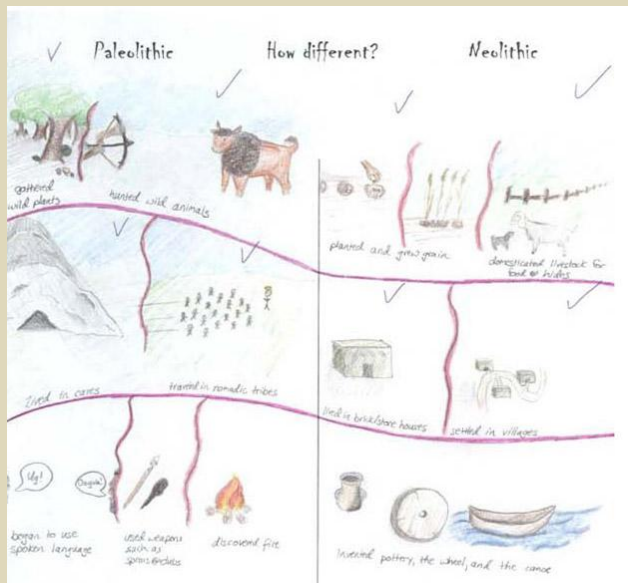 Paleolithic How different? Neolithic
gathered
wild plants
hunted wild animals
planted and grew grain
domesticated livestock for
food or hides
lived in caves
traveled in nomadic tribes
lived in brick/stone houses
settled in villages
Ug!
Ooguh!
began to use
spoken language
used weapons
such as
spears & clubs
discovered fire
Invented pottery, the wheel, and the canoe